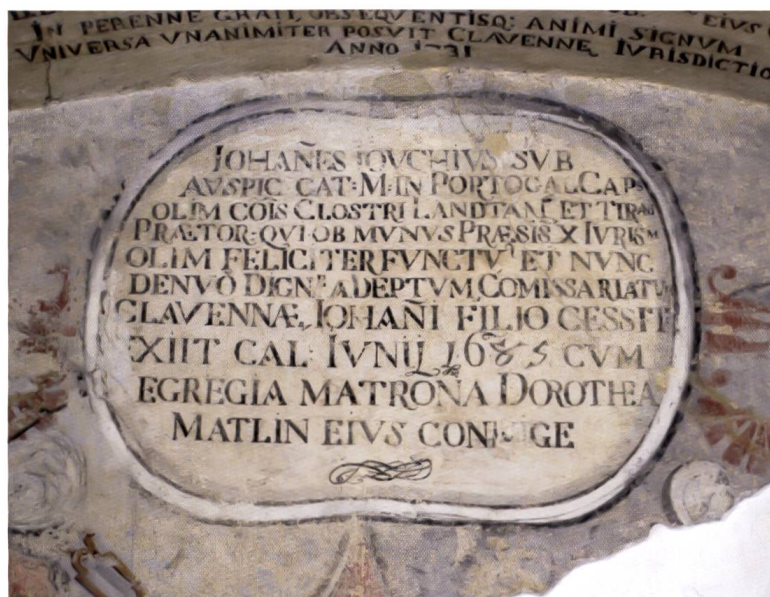 IN PERENNE GRATI, OBSEQVENTISQ: ANIMI SIGNVM
VNIVERSA VNANIMITER POSVIT CLAVENNE IVRISDICTIO
ANNO 1731
EIVS
IOHAÑES IOVCHIVS SVB
AVSPIC CAT: M: IN PORTOGAL CAP
OLIM COIS CLOSTRI LANDTAM ET TIRAN
PRÆTOR: QVI OB MVNVS PRÆSIS X IVRIS
OLIM FELICITER FVNCTV ET NVNC
DENVÒ DIGN ADEPTVM COMISSARIATV
CLAVENNÆ, IOHAÑI FILIO CESSIT
XIIT CAL: IVNII 1685 CVM
EGREGIA MATRONA DOROTHEA
MATLIN EIVS CONIVGE